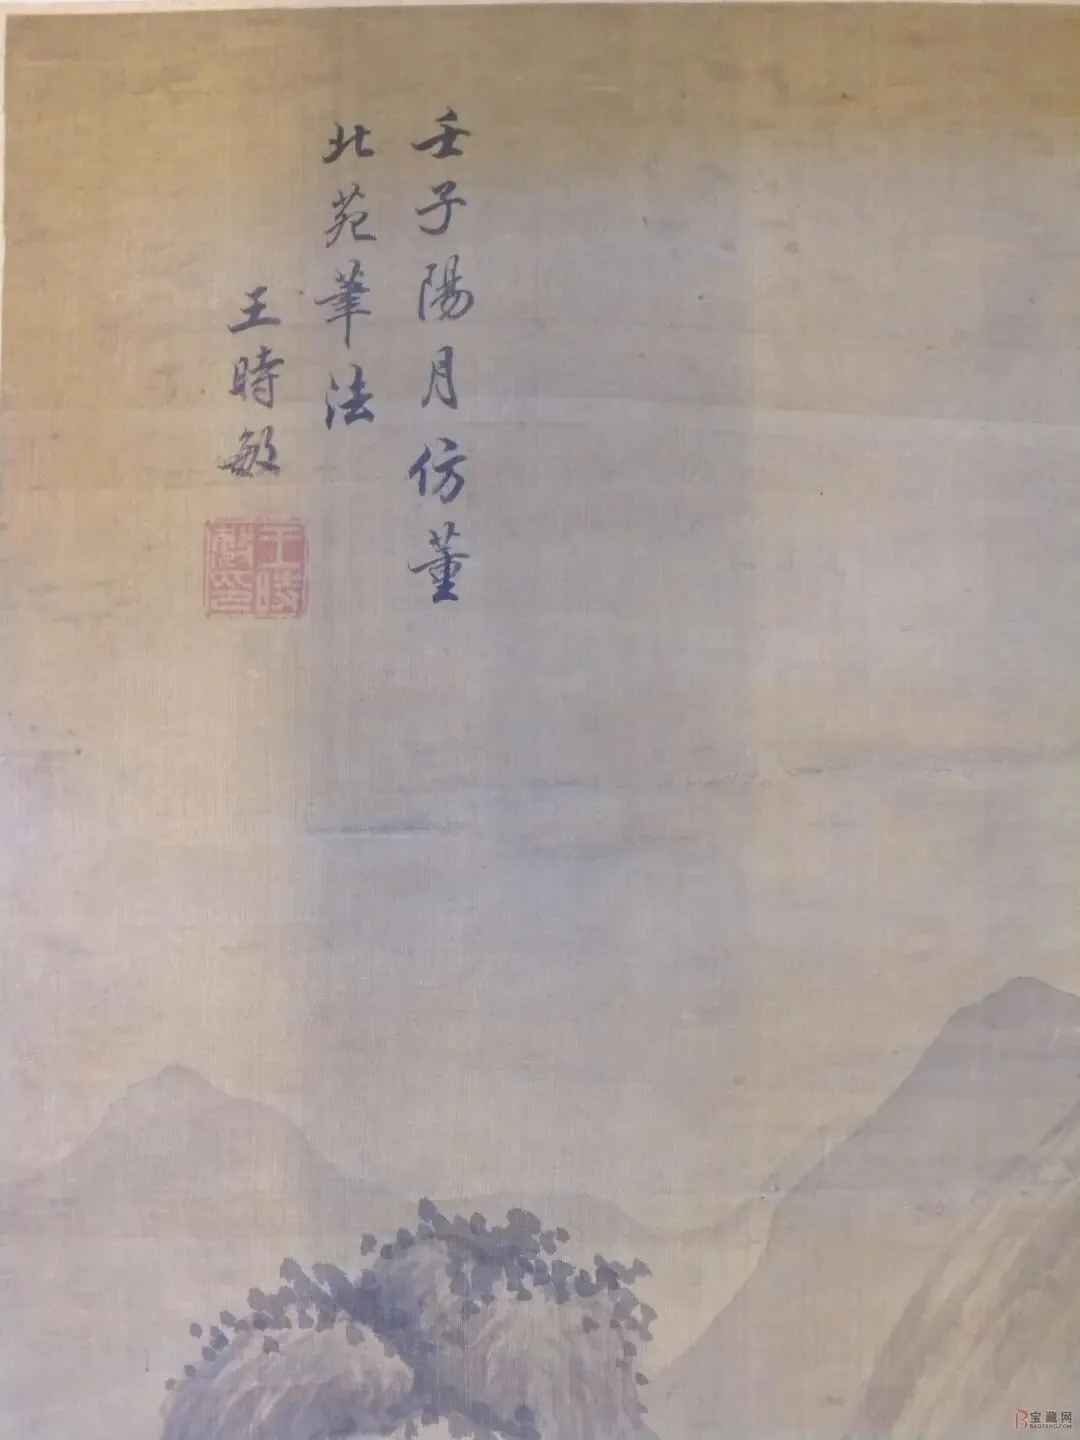 壬子陽月仿董
北苑筆法
王時敏
王時
敏印
宝藏网
BAOZANG.COM